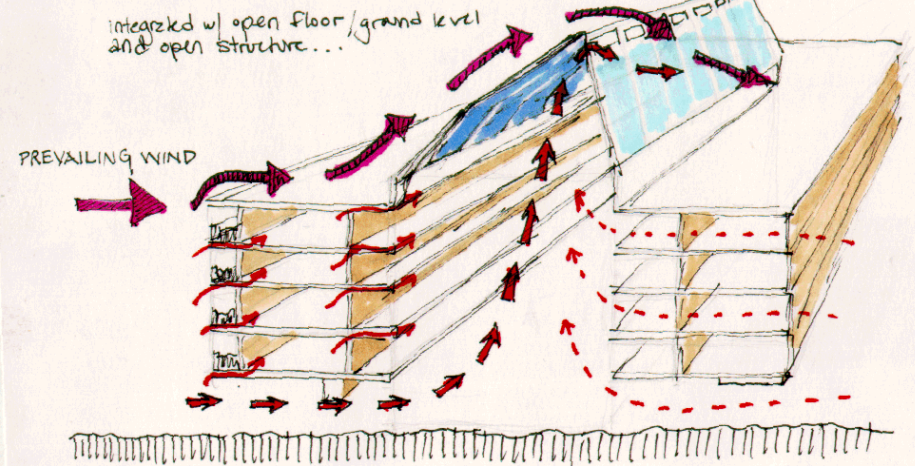 integrated w/ open floor/ground level
and open structure...
PREVAILING WIND